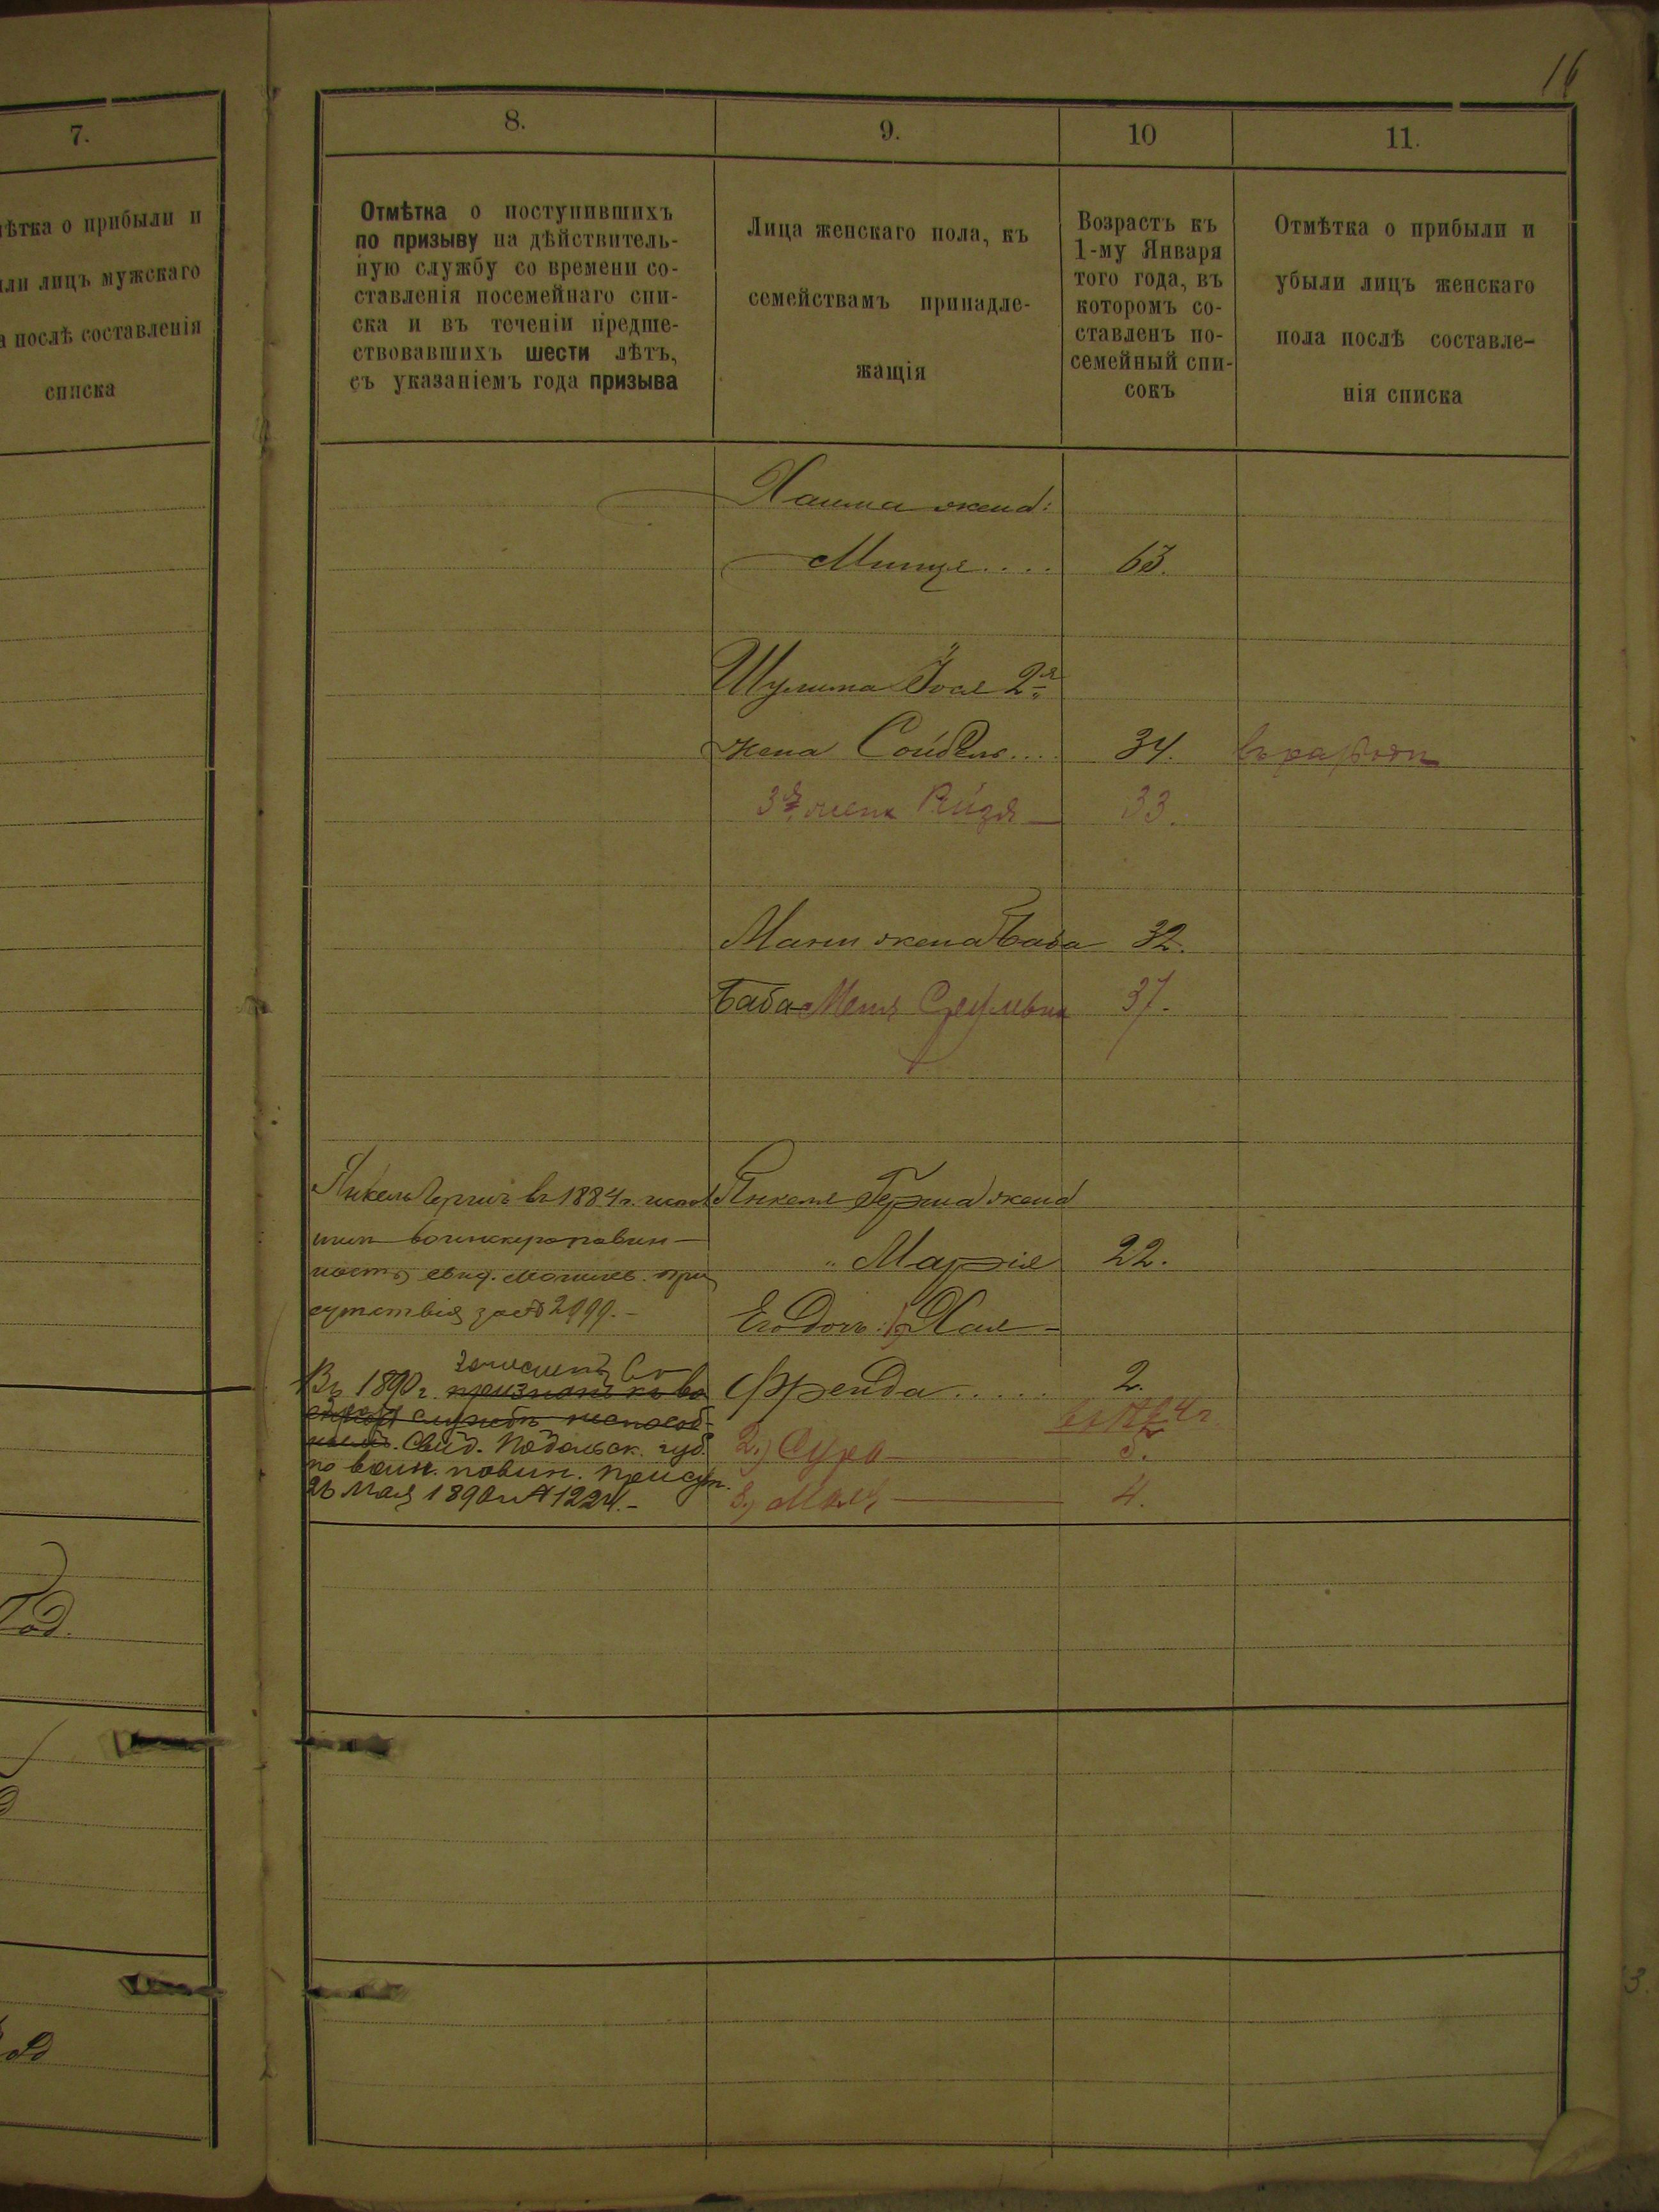 16
7.
ѣтка о прибыли и
ли лицъ мужскаго
а послѣ составленія
списка
8.
Отмѣтка о поступившихъ
по призыву на дѣйствитель-
ную службу со времени со-
ставленія посемейнаго спи-
ска и въ теченіи предше-
ствовавшихъ шести лѣтъ,
съ указаніемъ года призыва
9.
Лица женскаго пола, къ
семействамъ принадле-
жащія
10
Возрастъ къ
1-му Января
того года, въ
которомъ со-
ставленъ по-
семейный спи-
сокъ
11.
Отмѣтка о прибыли и
убыли лицъ женскаго
пола послѣ составле-
нія списка
Хаима жена:
63.
Шулима Іося 2я
жена 34.
3я жена Рейзя 33.
жена Баба 32.
Баба 37.
Янкель Гершъ въ 1884 г.
воинскую повин-
ность, свид. Могилев. при
сутствія за № 2999.-
Янкеля Герша жена
" Марія 22.
Его дочь: 1) Хая -
Фрейда..... 2.
2.) Сура 5.
3.) 4.
зачисленъ въ
Въ 1890 г. признанъ къ во
службѣ неспособ-
нымъ. Свид. Подольск. губ.
по воин. повин. присут.
26 Мая 1890 г. № 1224.-